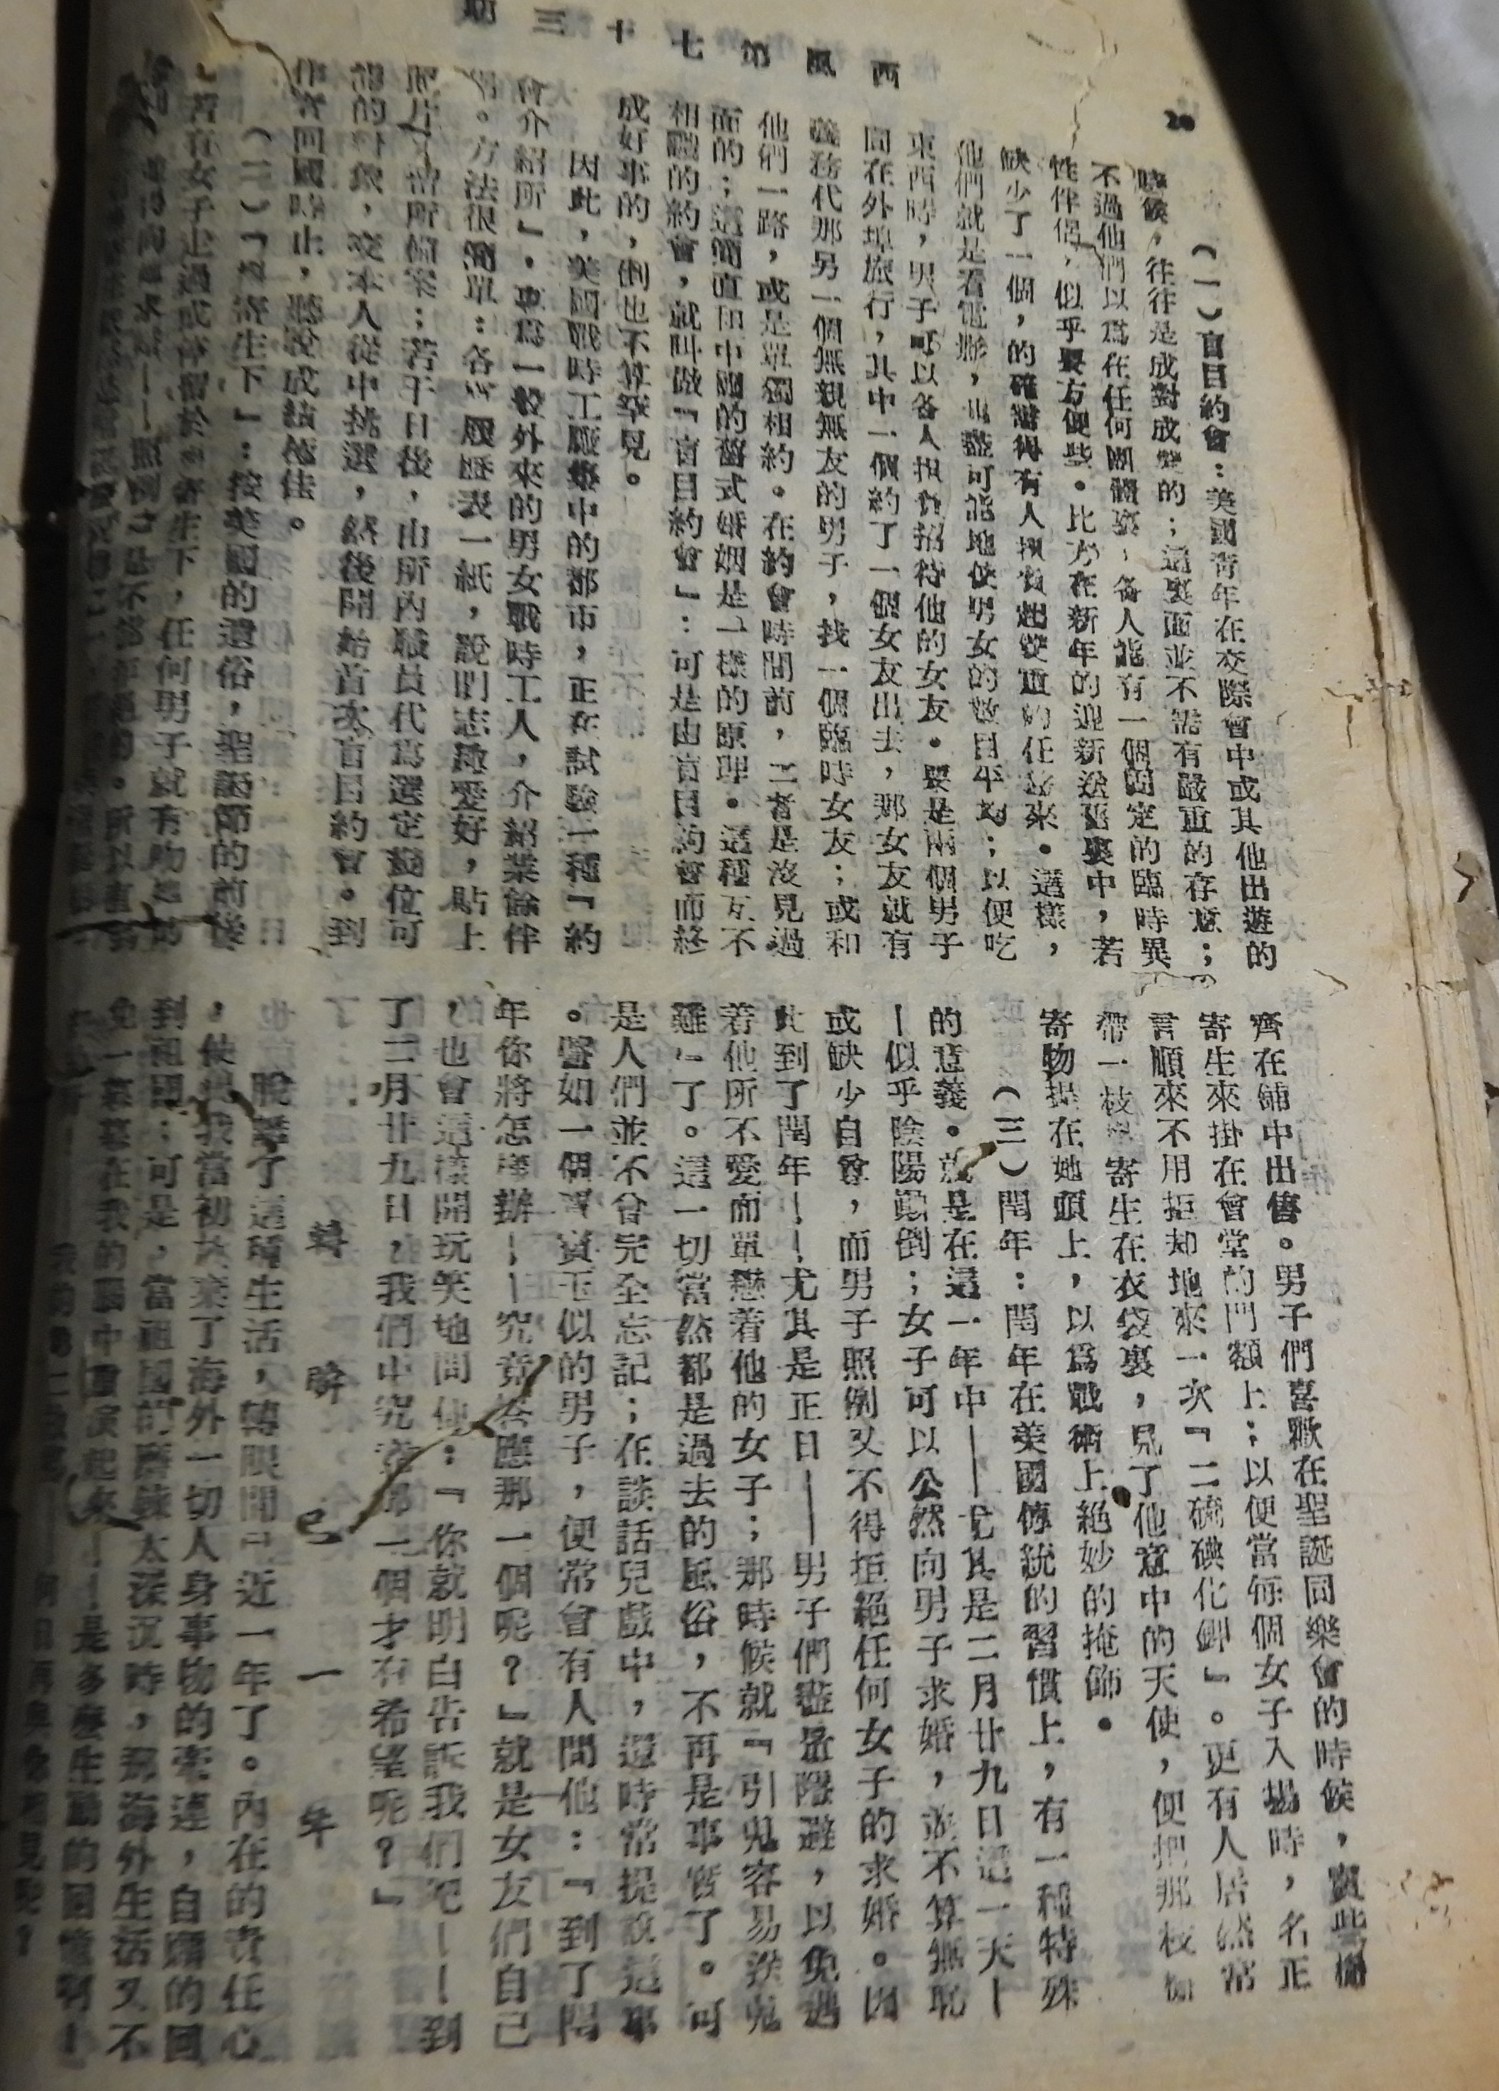 西風第七十三期
20
(一)盲目約會：美國青年在交際會中或其他出遊的
時候，往往是成對成雙的；這裏面並不需有嚴重的存意；
不過他們以爲在任何團體裏，各人能有一個固定的臨時異
性伴侶，似乎要方便些。比方在新年的迎新送舊裏中，若
缺少了一個，的確需得有人擔負起雙重的任務來。這樣，
他們就是看電影，也盡可能地使男女的數目平均；以便吃
東西時，男子可以各人擔負招待他的女友。要是兩個男子
同在外埠旅行，其中一個約了一個女友出去，那女友就有
義務代那另一個無親無友的男子，找一個臨時女友；或和
他們一路，或是單獨相約。在約會時間前，二者是沒見過
面的；這簡直和中國的舊式婚姻是一樣的原理。這種互不
相識的約會，就叫做『盲目約會』：可是由盲目約會而終
成好事的，倒也不算罕見。
因此，美國戰時工廠集中的都市，正在試驗一種『約
會介紹所』，專爲一般外來的男女戰時工人，介紹業餘伴
侶。方法很簡單：各填履歷表一紙，說明志趣愛好，貼上
照片，當所備案；若干日後，由所內職員代爲選定幾位可
能的對象，交本人從中挑選，然後開始首次盲目約會。到
作者回國時止，聽說成績極佳。
(二)『寄生下』：按英國的遺俗，聖誕節的前後
，若有女子走過或停留於寄生下，任何男子就有吻她的
齊在鋪中出售。男子們喜歡在聖誕同樂會的時候，買些槲
寄生來掛在會堂的門額上；以便當每個女子入場時，名正
言順來不用拒却地來一次『二硫碘化鉀』。更有人居然常
帶一枝寄生在衣袋裏，見了他意中的天使，便把那枝槲
寄物提在她頭上，以爲戰術上絕妙的掩飾。
(三)閏年：閏年在美國傳統的習慣上，有一種特殊
的意義。就是在這一年中——尤其是二月廿九日這一天—
—似乎陰陽顚倒；女子可以公然向男子求婚，並不算無恥
或缺少自尊，而男子照例又不得拒絕任何女子的求婚。因
此到了閏年——尤其是正日——男子們盡量隱避，以免遇
着他所不愛而單戀着他的女子；那時候就『引鬼容易送鬼
難』了。這一切當然都是過去的風俗，不再是事實了。可
是人們並不曾完全忘記；在談話兒戲中，還時常提說這事
。譬如一個賈寶玉似的男子，便常會有人問他：『到了閏
年你將怎樣辦——究竟答應那一個呢？』就是女友們自己
，也會這樣開玩笑地問他：『你就明白告訴我們吧——到
了二月廿九日，我們中究竟那一個才有希望呢？』
轉瞬已一年
脫離了這種生活，轉眼間已近一年了。內在的責任心
，使我當初抉棄了海外一切人身事物的牽連，自贖的回
到祖國；可是，當祖國的磨鍊太深沉時，那海外生活又不
免一幕幕在我的腦中重演起來——是多麼生動的回憶啊！